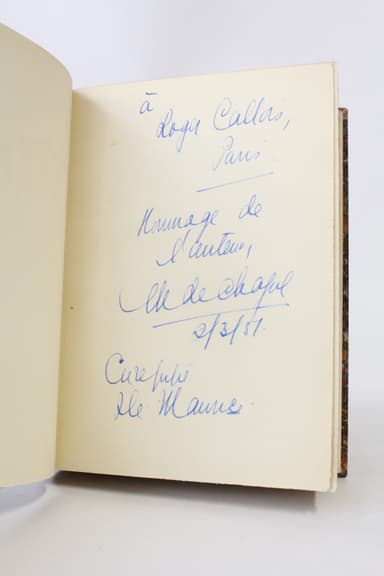 à
Roger Callois,
Paris
Hommage de
l'auteur,
M de Chazal
2/3/51.
Curepipe
Ile Maurice.